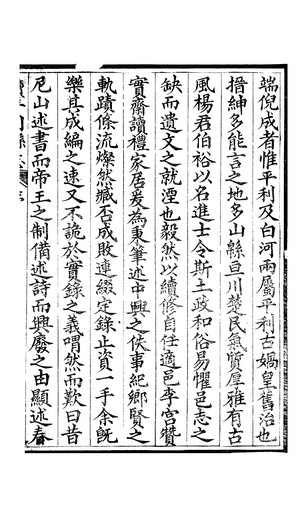 端倪成者惟平利及白河兩屬平利古媧皇舊治也
搢紳多能言之地多山縣亘川楚民氣質厚雅有古
風楊君伯裕以名進士令斯土政和俗易懼邑志之
缺而遺文之就湮也毅然以續修自任適邑李宮贊
實齋讀禮家居爰為秉筆述中興之佚事紀鄉賢之
軌蹟條流燦然臧否成敗連綴定錄止資一手余既
樂其成編之速又不詭於實錄之義喟然而歎曰昔
尼山述書而帝王之制備述詩而興廢之由顯述春